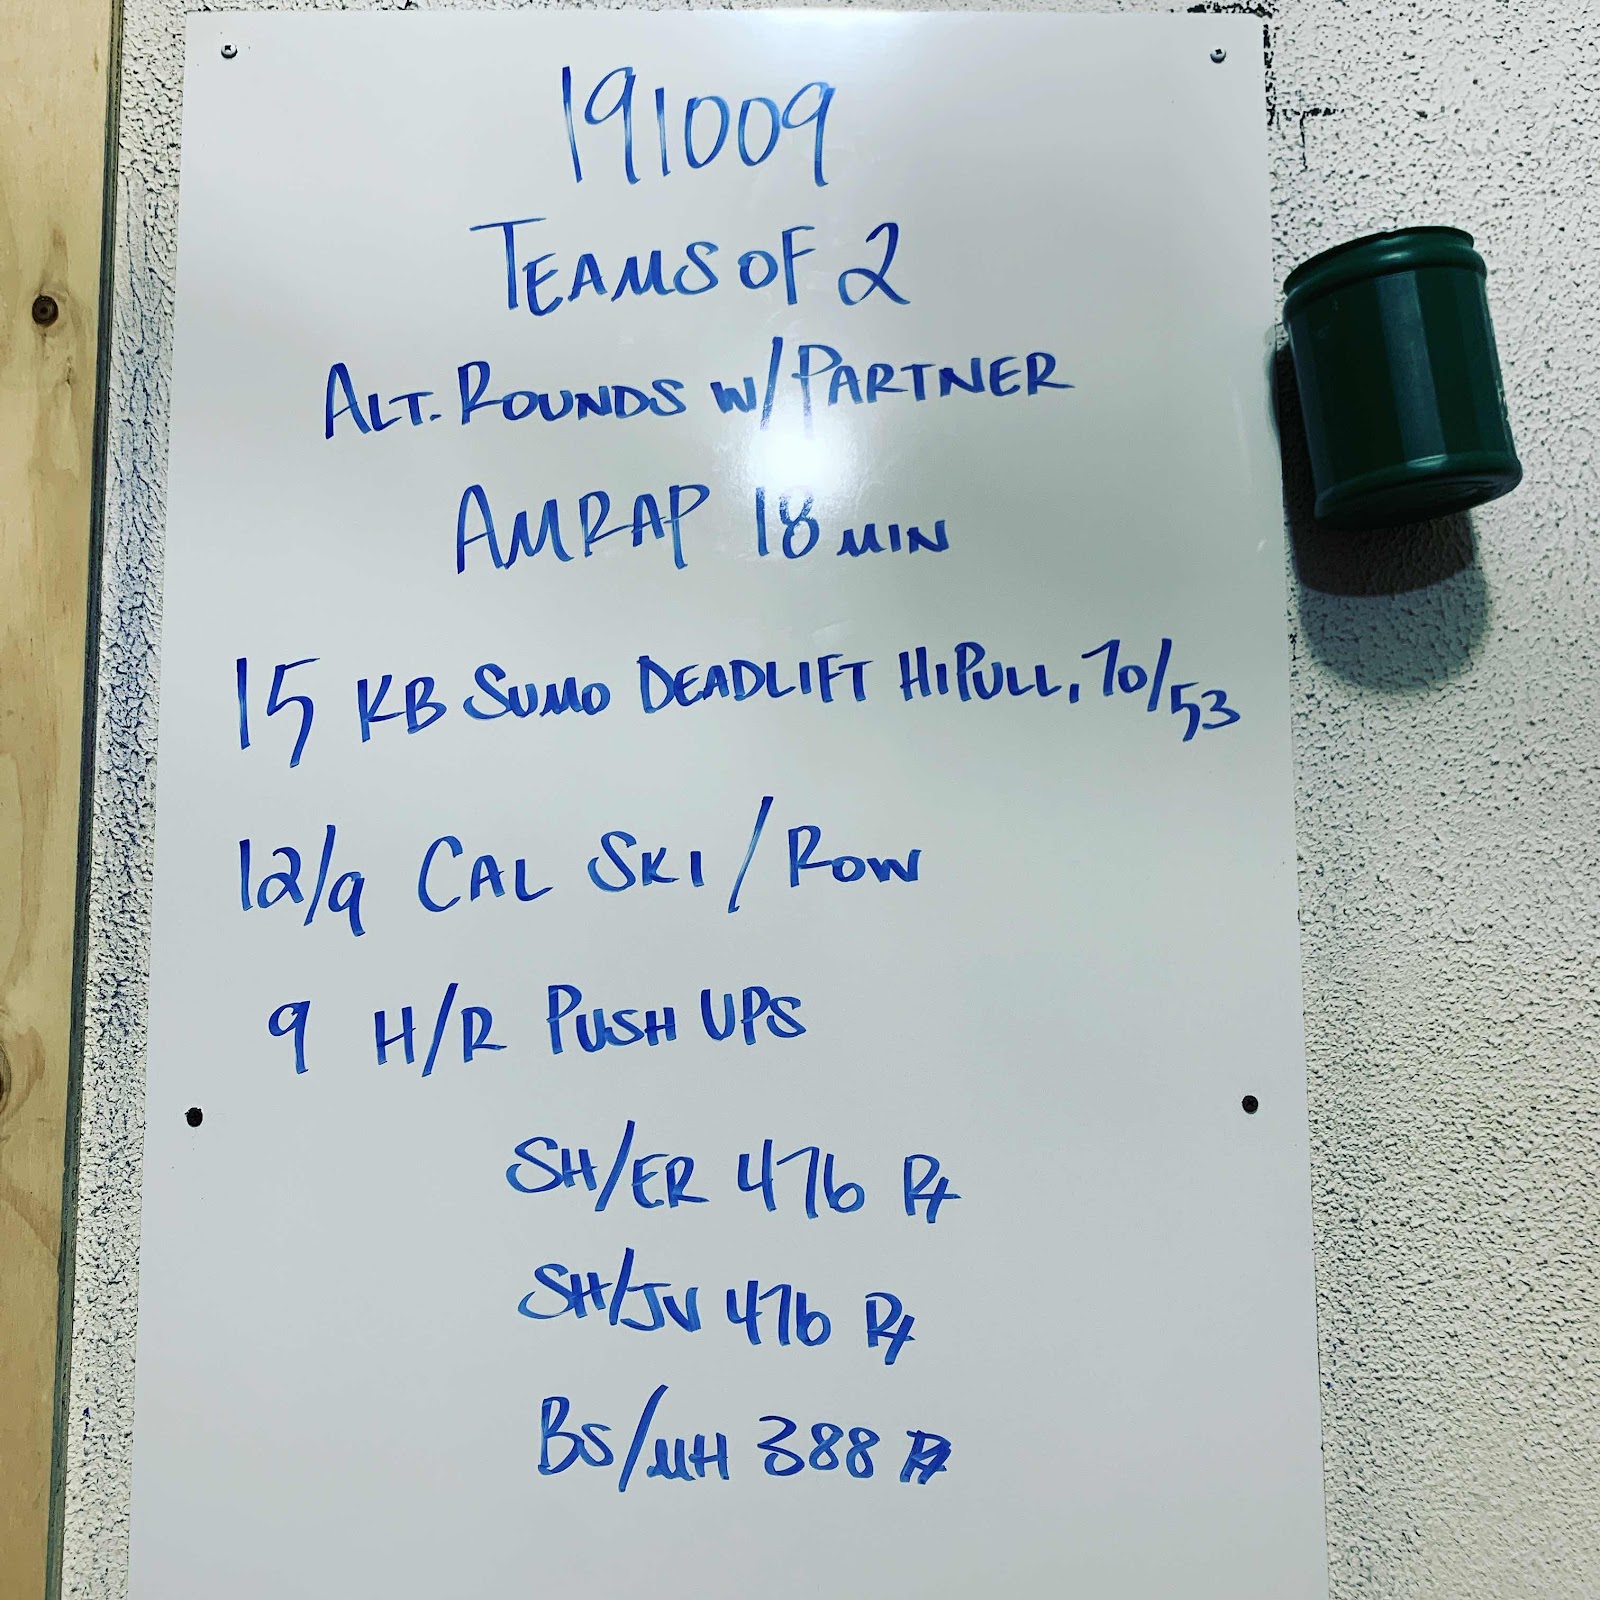 191009
TEAMS OF 2
ALT. ROUNDS W/PARTNER
AMRAP 18 MIN
15 KB SUMO DEADLIFT HIPULL, 70/53
12/9 CAL SKI / ROW
9 H/R PUSH UPS
SH/ER 476 Rx
SH/JV 476 Rx
BS/MH 388 Rx